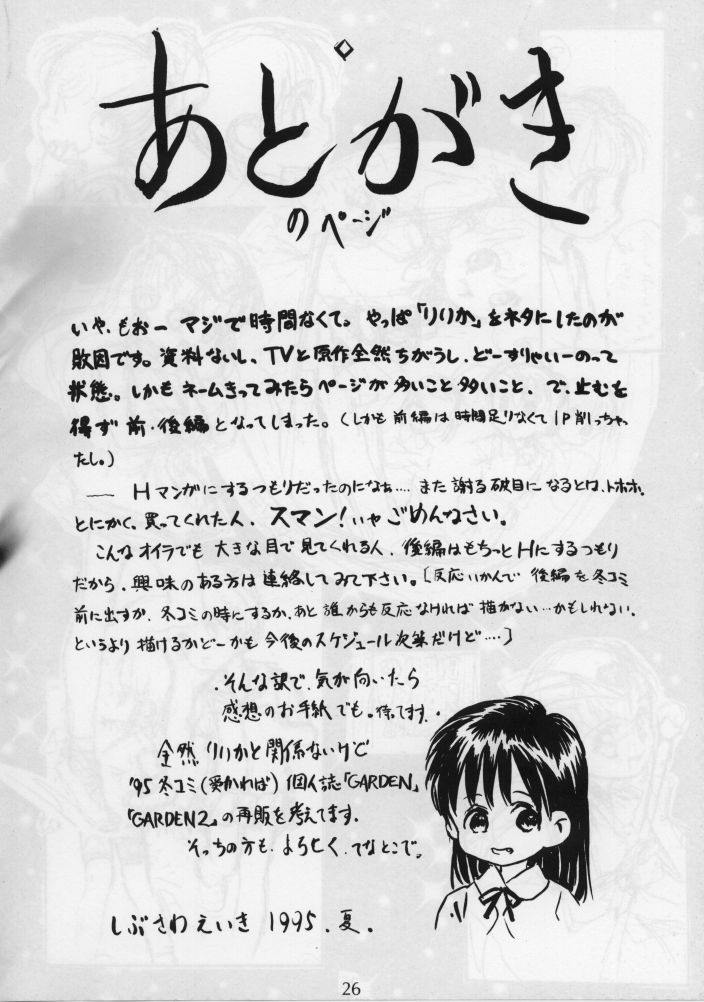 あとがき
のページ
いや、もおー マジで時間なくて。やっぱ「りりか」をネタにしたのが
敗因です。資料ないし、TVと原作全然ちがうし、どーすりゃいーのって
状態。しかもネームきってみたらページが多いこと多いこと、で、止むを
得ず前・後編となってしまった。(しかも前編は時間足りなくて1P削っちゃっ
たし。)
── Hマンガにするつもりだったのになぁ‥‥また謝る破目になるとは、トホホ。
とにかく、買ってくれた人、スマン!いやごめんなさい。
こんなオイラでも大きな目で見てくれる人、後編はもちっとHにするつもり
だから、興味のある方は連絡してみて下さい。[反応いかんで後編を冬コミ
前に出すか、冬コミの時にするか、あと誰からも反応なければ描かない…かもしれない。
というより描けるかどーかも今後のスケジュール次第だけど‥‥]
そんな訳で、気が向いたら
感想のお手紙でも。待てます。
全然りりかと関係ないけど
'95冬コミ(受かれば)個人誌「GARDEN」
「GARDEN2」の再販を考えてます。
そっちの方も、よろしく、てなとこで。
しぶさわえいき 1995.夏.
26